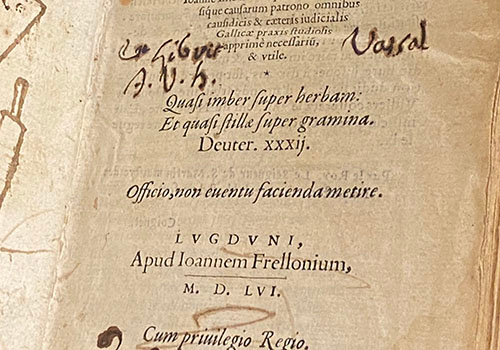 sique causarum patrono omnibus
causidicis & cæteris iudicialis
Gallicæ praxis studiosis
apprimè necessariū,
& vtile.
Vassal
A. V. h.
Quasi imber super herbam:
Et quasi stillæ super gramina.
Deuter. xxxij.
Officio, non euentu facienda metire.
LVGDVNI,
Apud Ioannem Frellonium,
M. D. LVI.
Cum priuilegio Regio.